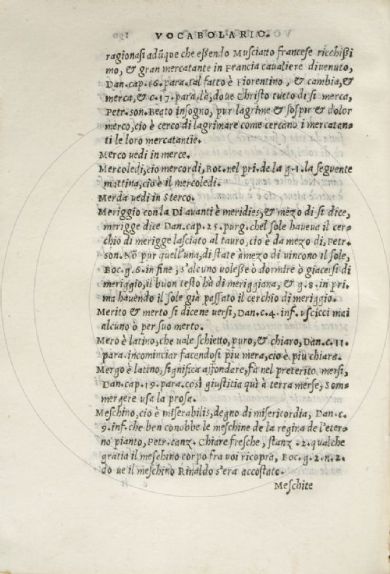 VOCABOLARIO.
ragionasi adūque che essendo Musciatto francese ricchissi
mo, & gran mercatante in francia caualiere diuenuto,
Dan. cap. 16. para. tal fatto è Fiorentino, & cambia, &
merca, & c. 17. para. là, doue Christo tutto dì si merca,
Petr. son. Beato insogno, pur lagrime & sospir & dolor
merco, cio è cerco di lagrimare come cercano i mercatan
ti le loro mercatantie.
Merco uedi in merce.
Mercoledi, cio mercordi, Boc. nel pri. de la g. 1. la seguente
mattina, cio è il mercoledi.
Merda uedi in Sterco.
Meriggio con la Di auanti è meridies, & mezo di si dice,
merigge dice Dan. cap. 25. purg. che'l sole haueua il cer=
chio di merigge lasciato al tauro, cio è da mezo di, Petr=
son. Nō pur quell'una, di state à mezo di uincono il sole,
Boc. g. 6. in fine, s'alcuno uolesse ò dormire ò giacersi di
meriggio, il buon testo hà di meriggiana, & g. 8. in pri=
ma hauendo il sole già passato il cerchio di meriggio.
Merito & merto si dicene uersi, Dan. c. 4. inf. uscicci mai
alcuno ò per suo merto.
Mero è latino, che uale schietto, puro, & chiaro, Dan. c. 11.
para. incominciar facendosi piu mera, cio è piu chiara.
Mergo è latino, significa affondere, fa nel preterito mersi,
Dan. cap. 19. para. così giustitia quì à terra merse, som=
mergere usa la prosa.
Meschino, cio è miserabilis, degno di misericordia, Dan. c.
9. inf. che ben conobbe le meschine de la regina de l'eter=
no pianto, Petr. canz. Chiare fresche, stanz. 2. qualche
gratia il meschino corpo fra uoi ricopra, Boc. g. 2. n. 2.
do ue il meschino Rinaldo s'era accostato.
Meschite